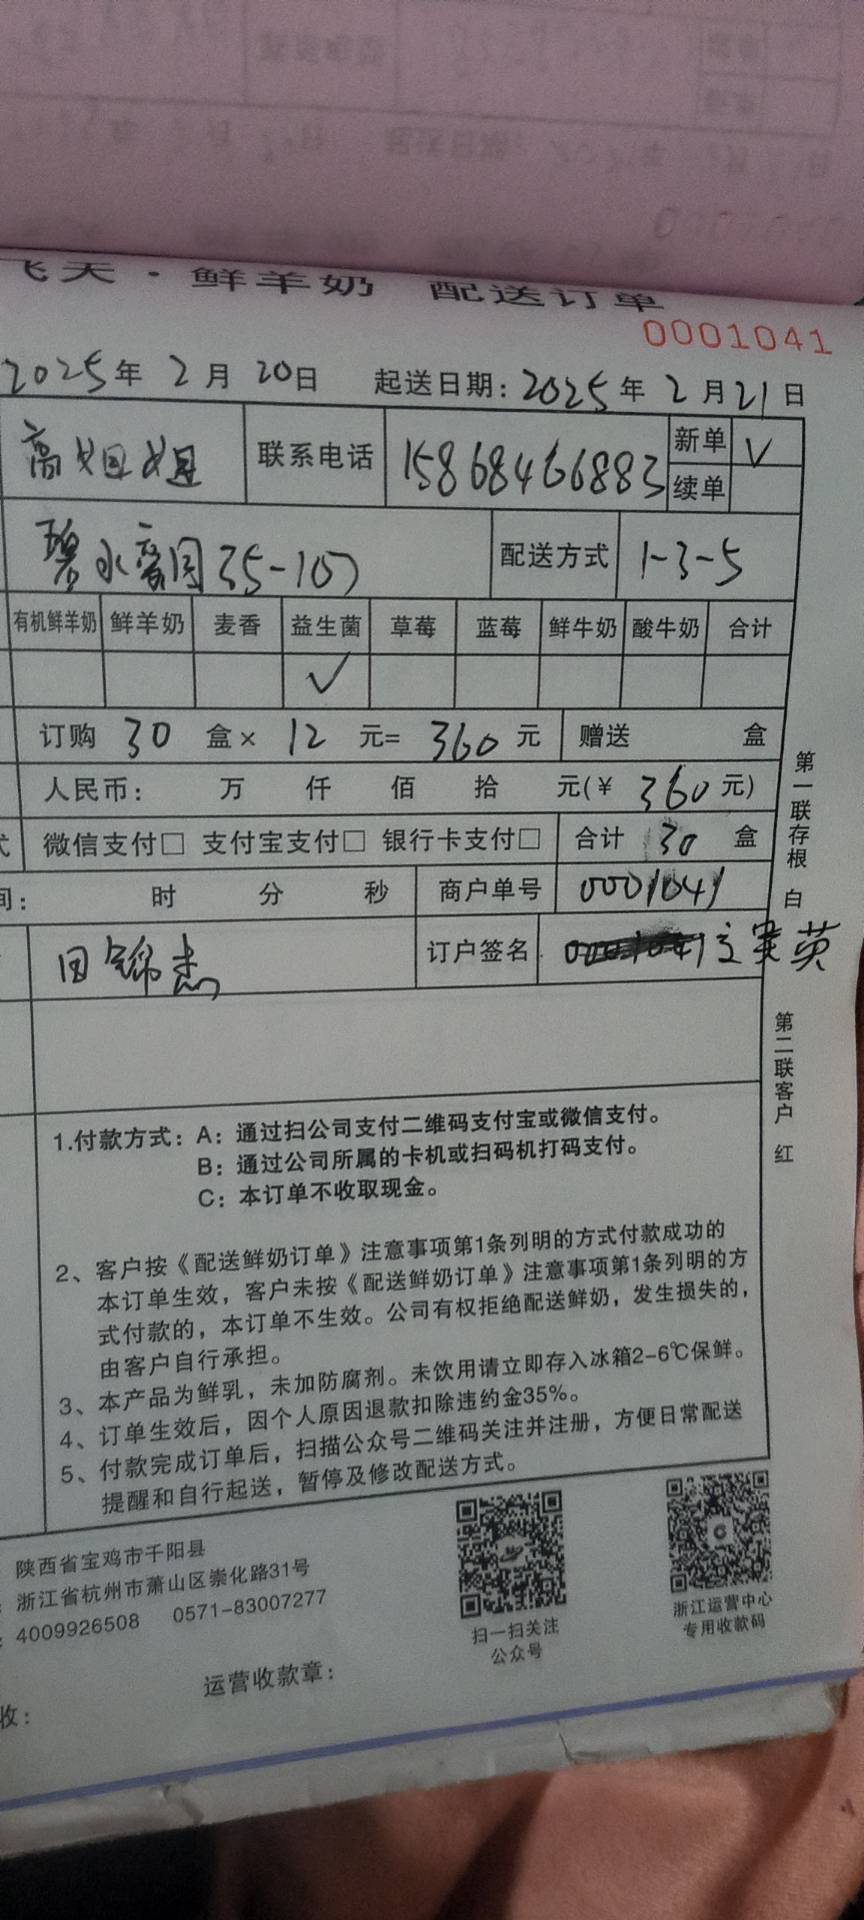 飞天·鲜羊奶 配送订单
0001041
2025年 2月 20日 起送日期：2025年 2月21日
高姐姐 联系电话 15868466883 新单 √
续单
碧水豪园35-107 配送方式 1-3-5
有机鲜羊奶 鲜羊奶 麦香 益生菌 草莓 蓝莓 鲜牛奶 酸牛奶 合计
√
订购 30 盒× 12 元= 360 元 赠送 盒
人民币： 万 仟 佰 拾 元(¥ 360 元)
微信支付□ 支付宝支付□ 银行卡支付□ 合计 30 盒
间： 时 分 秒 商户单号 0001041
田锦杰 订户签名
第一联存根 白
第二联客户 红
1.付款方式：A：通过扫公司支付二维码支付宝或微信支付。
B：通过公司所属的卡机或扫码机打码支付。
C：本订单不收取现金。
2、客户按《配送鲜奶订单》注意事项第1条列明的方式付款成功的
本订单生效，客户未按《配送鲜奶订单》注意事项第1条列明的方
式付款的，本订单不生效。公司有权拒绝配送鲜奶，发生损失的，
由客户自行承担。
3、本产品为鲜乳，未加防腐剂。未饮用请立即存入冰箱2-6℃保鲜。
4、订单生效后，因个人原因退款扣除违约金35%。
5、付款完成订单后，扫描公众号二维码关注并注册，方便日常配送
提醒和自行起送，暂停及修改配送方式。
陕西省宝鸡市千阳县
浙江省杭州市萧山区崇化路31号
4009926508 0571-83007277
扫一扫关注
公众号
浙江运营中心
专用收款码
运营收款章：
收：